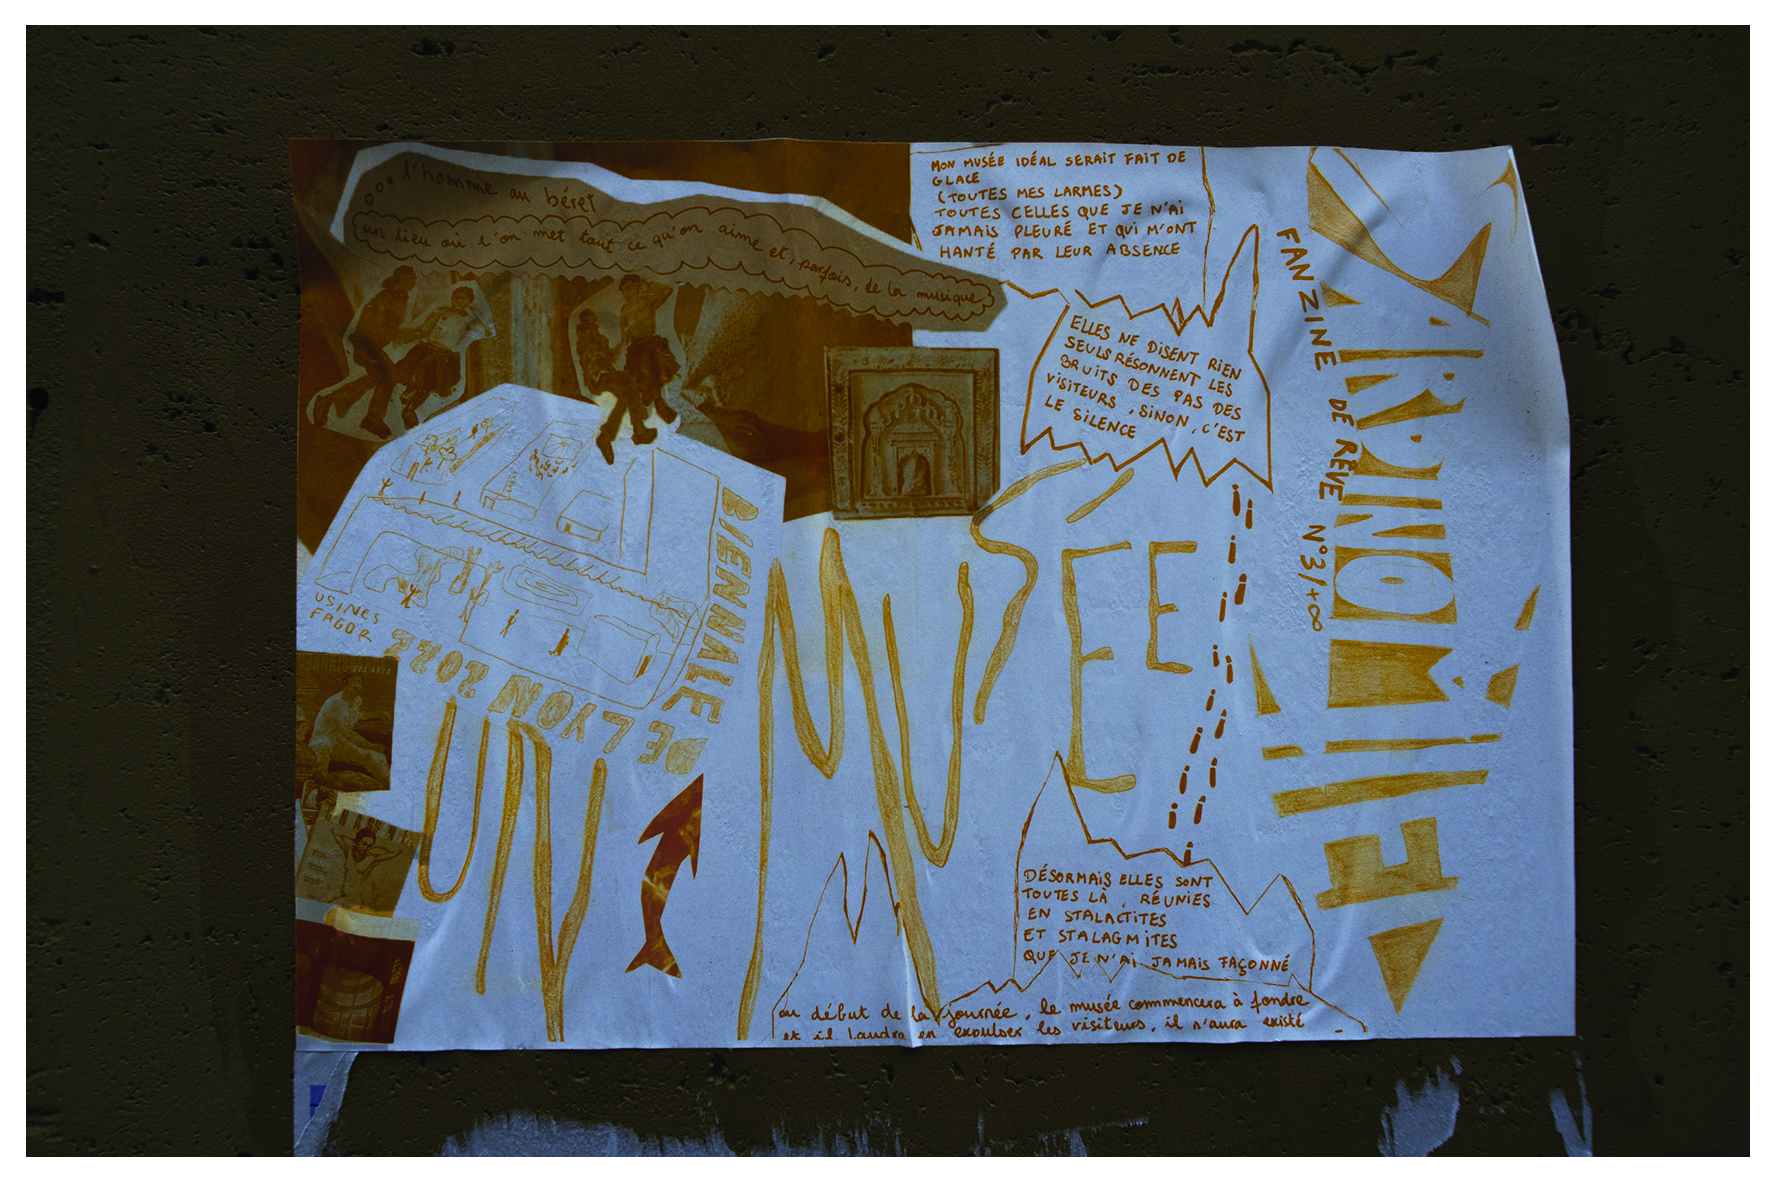 l'homme au béret
un lieu où l'on met tout ce qu'on aime et, parfois, de la musique
MON MUSÉE IDÉAL SERAIT FAIT DE
GLACE
(TOUTES MES LARMES)
TOUTES CELLES QUE JE N'AI
JAMAIS PLEURÉ ET QUI M'ONT
HANTÉ PAR LEUR ABSENCE
ELLES NE DISENT RIEN
SEULS RÉSONNENT LES
BRUITS DES PAS DES
VISITEURS, SINON, C'EST
LE SILENCE
BIENNALE
DE LYON 2022
USINES
FAGOR
UN MUSÉE
DÉSORMAIS ELLES SONT
TOUTES LÀ, RÉUNIES
EN STALACTITES
ET STALAGMITES
QUE JE N'AI JAMAIS FAÇONNÉ
au début de la journée, le musée commencera à fondre
et il faudra en expulser les visiteurs, il n'aura existé
FANZINE DE RÊVE N°3/+∞